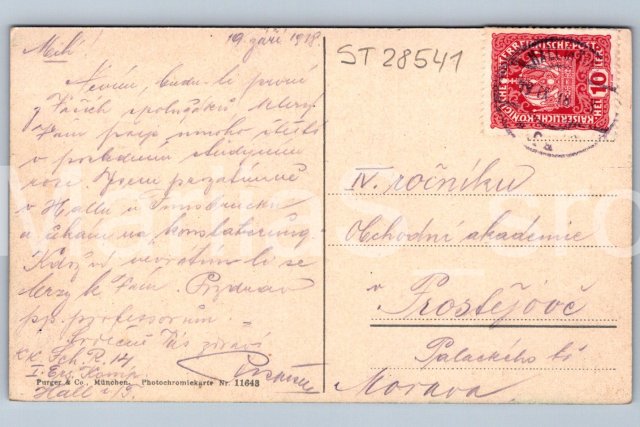 19. září 1918
ST 28541
Milí!
Nevím, budu-li první
z Vašich spolužáků, který
Vám přeje mnoho štěstí
v posledním studijním
roce. Jsem prozatímně
v Hallu u Innsbrucku
a čekám na konstatierung.
Když ne, vrátím-li se
brzy k Vám. Pozdrav
pp. professorům.
Srdečně Vás zdraví
KK. Sch. R. 14
I. Erg. Komp.
Hall i/T.
Purger & Co., München. Photochromiekarte Nr. 11643
KAISERLICHE KÖNIGLICHE ÖSTERREICHISCHE POST
10
HELLER
IV. ročníku
Obchodní akademie
v Prostějově
Palackého tř.
Morava